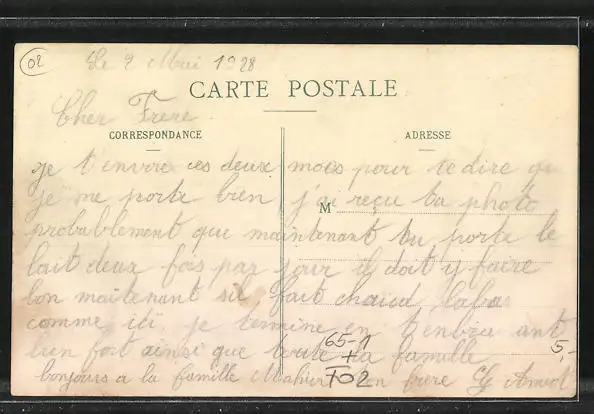 02
Le 2 Mai 1928
CARTE POSTALE
Cher Frere
CORRESPONDANCE
ADRESSE
je t'envoie ces deux mots pour te dire que
je me porte bien j'ai reçu ta photo
M
probablement que maintenant tu porte le
lait deux fois par jour il doit y faire
bon maitenant sil fait chaud labas
comme ici je termine en t'embra ant
bien fort ainsi que toute la famille
65-1
5,-
bonjours a la famille ton frere
F02